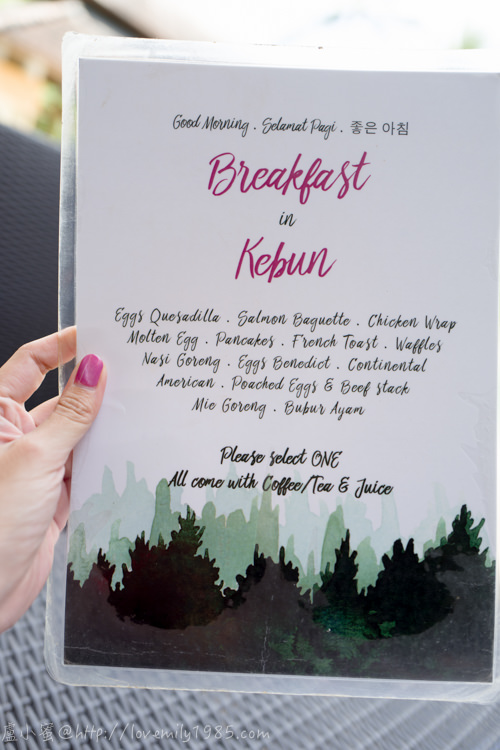 Good Morning . Selamat Pagi . 좋은 아침
Breakfast
in
Kebun
Eggs Quesadilla . Salmon Baguette . Chicken Wrap
Molten Egg . Pancakes . French Toast . Waffles
Nasi Goreng . Eggs Benedict . Continental
American . Poached Eggs & Beef stack
Mie Goreng . Bubur Ayam
Please select ONE
All come with Coffee/Tea & Juice
盧小蜜@http://lovemily1985.com